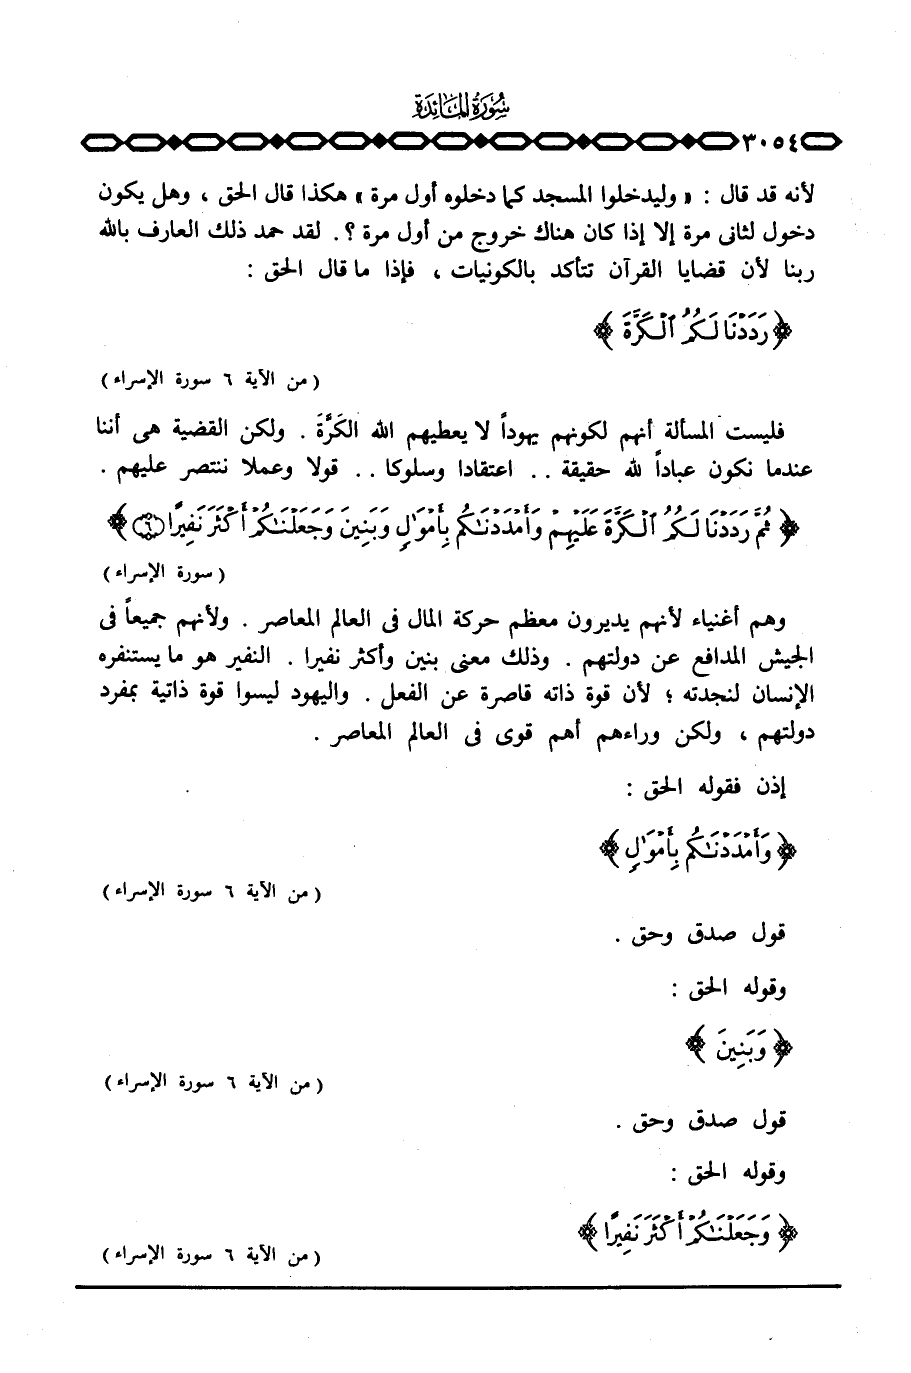 سُورَةُ المَائِدَةِ
٣٠٥٤
لأنه قد قال : « وليدخلوا المسجد كما دخلوه أول مرة » هكذا قال الحق ، وهل يكون
دخول لثانى مرة إلا إذا كان هناك خروج من أول مرة ؟. لقد حمد ذلك العارف بالله
ربنا لأن قضايا القرآن تتأكد بالكونيات ، فإذا ما قال الحق :
﴿ رَدَدْنَا لَكُمُ ٱلْكَرَّةَ ﴾
( من الآية ٦ سورة الإسراء )
فليست المسألة أنهم لكونهم يهوداً لا يعطيهم الله الكَرَّةَ . ولكن القضية هى أننا
عندما نكون عباداً لله حقيقة .. اعتقادا وسلوكا .. قولا وعملا ننتصر عليهم .
﴿ ثُمَّ رَدَدْنَا لَكُمُ ٱلْكَرَّةَ عَلَيْهِمْ وَأَمْدَدْنَٰكُم بِأَمْوَٰلٍ وَبَنِينَ وَجَعَلْنَٰكُمْ أَكْثَرَ نَفِيرًا ٦ ﴾
( سورة الإسراء )
وهم أغنياء لأنهم يديرون معظم حركة المال فى العالم المعاصر . ولأنهم جميعاً فى
الجيش المدافع عن دولتهم . وذلك معنى بنين وأكثر نفيرا . النفير هو ما يستنفره
الإنسان لنجدته ؛ لأن قوة ذاته قاصرة عن الفعل . واليهود ليسوا قوة ذاتية بمفرد
دولتهم ، ولكن وراءهم أهم قوى فى العالم المعاصر .
إذن فقوله الحق :
﴿ وَأَمْدَدْنَٰكُم بِأَمْوَٰلٍ ﴾
( من الآية ٦ سورة الإسراء )
قول صدق وحق .
وقوله الحق :
﴿ وَبَنِينَ ﴾
( من الآية ٦ سورة الإسراء )
قول صدق وحق .
وقوله الحق :
﴿ وَجَعَلْنَٰكُمْ أَكْثَرَ نَفِيرًا ﴾
( من الآية ٦ سورة الإسراء )